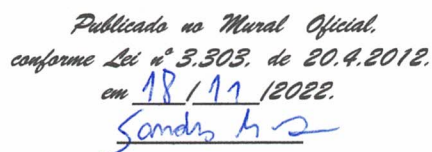 Publicado no Mural Oficial.
conforme Lei nº 3.303, de 20.4.2012.
em 18 / 11 /2022.